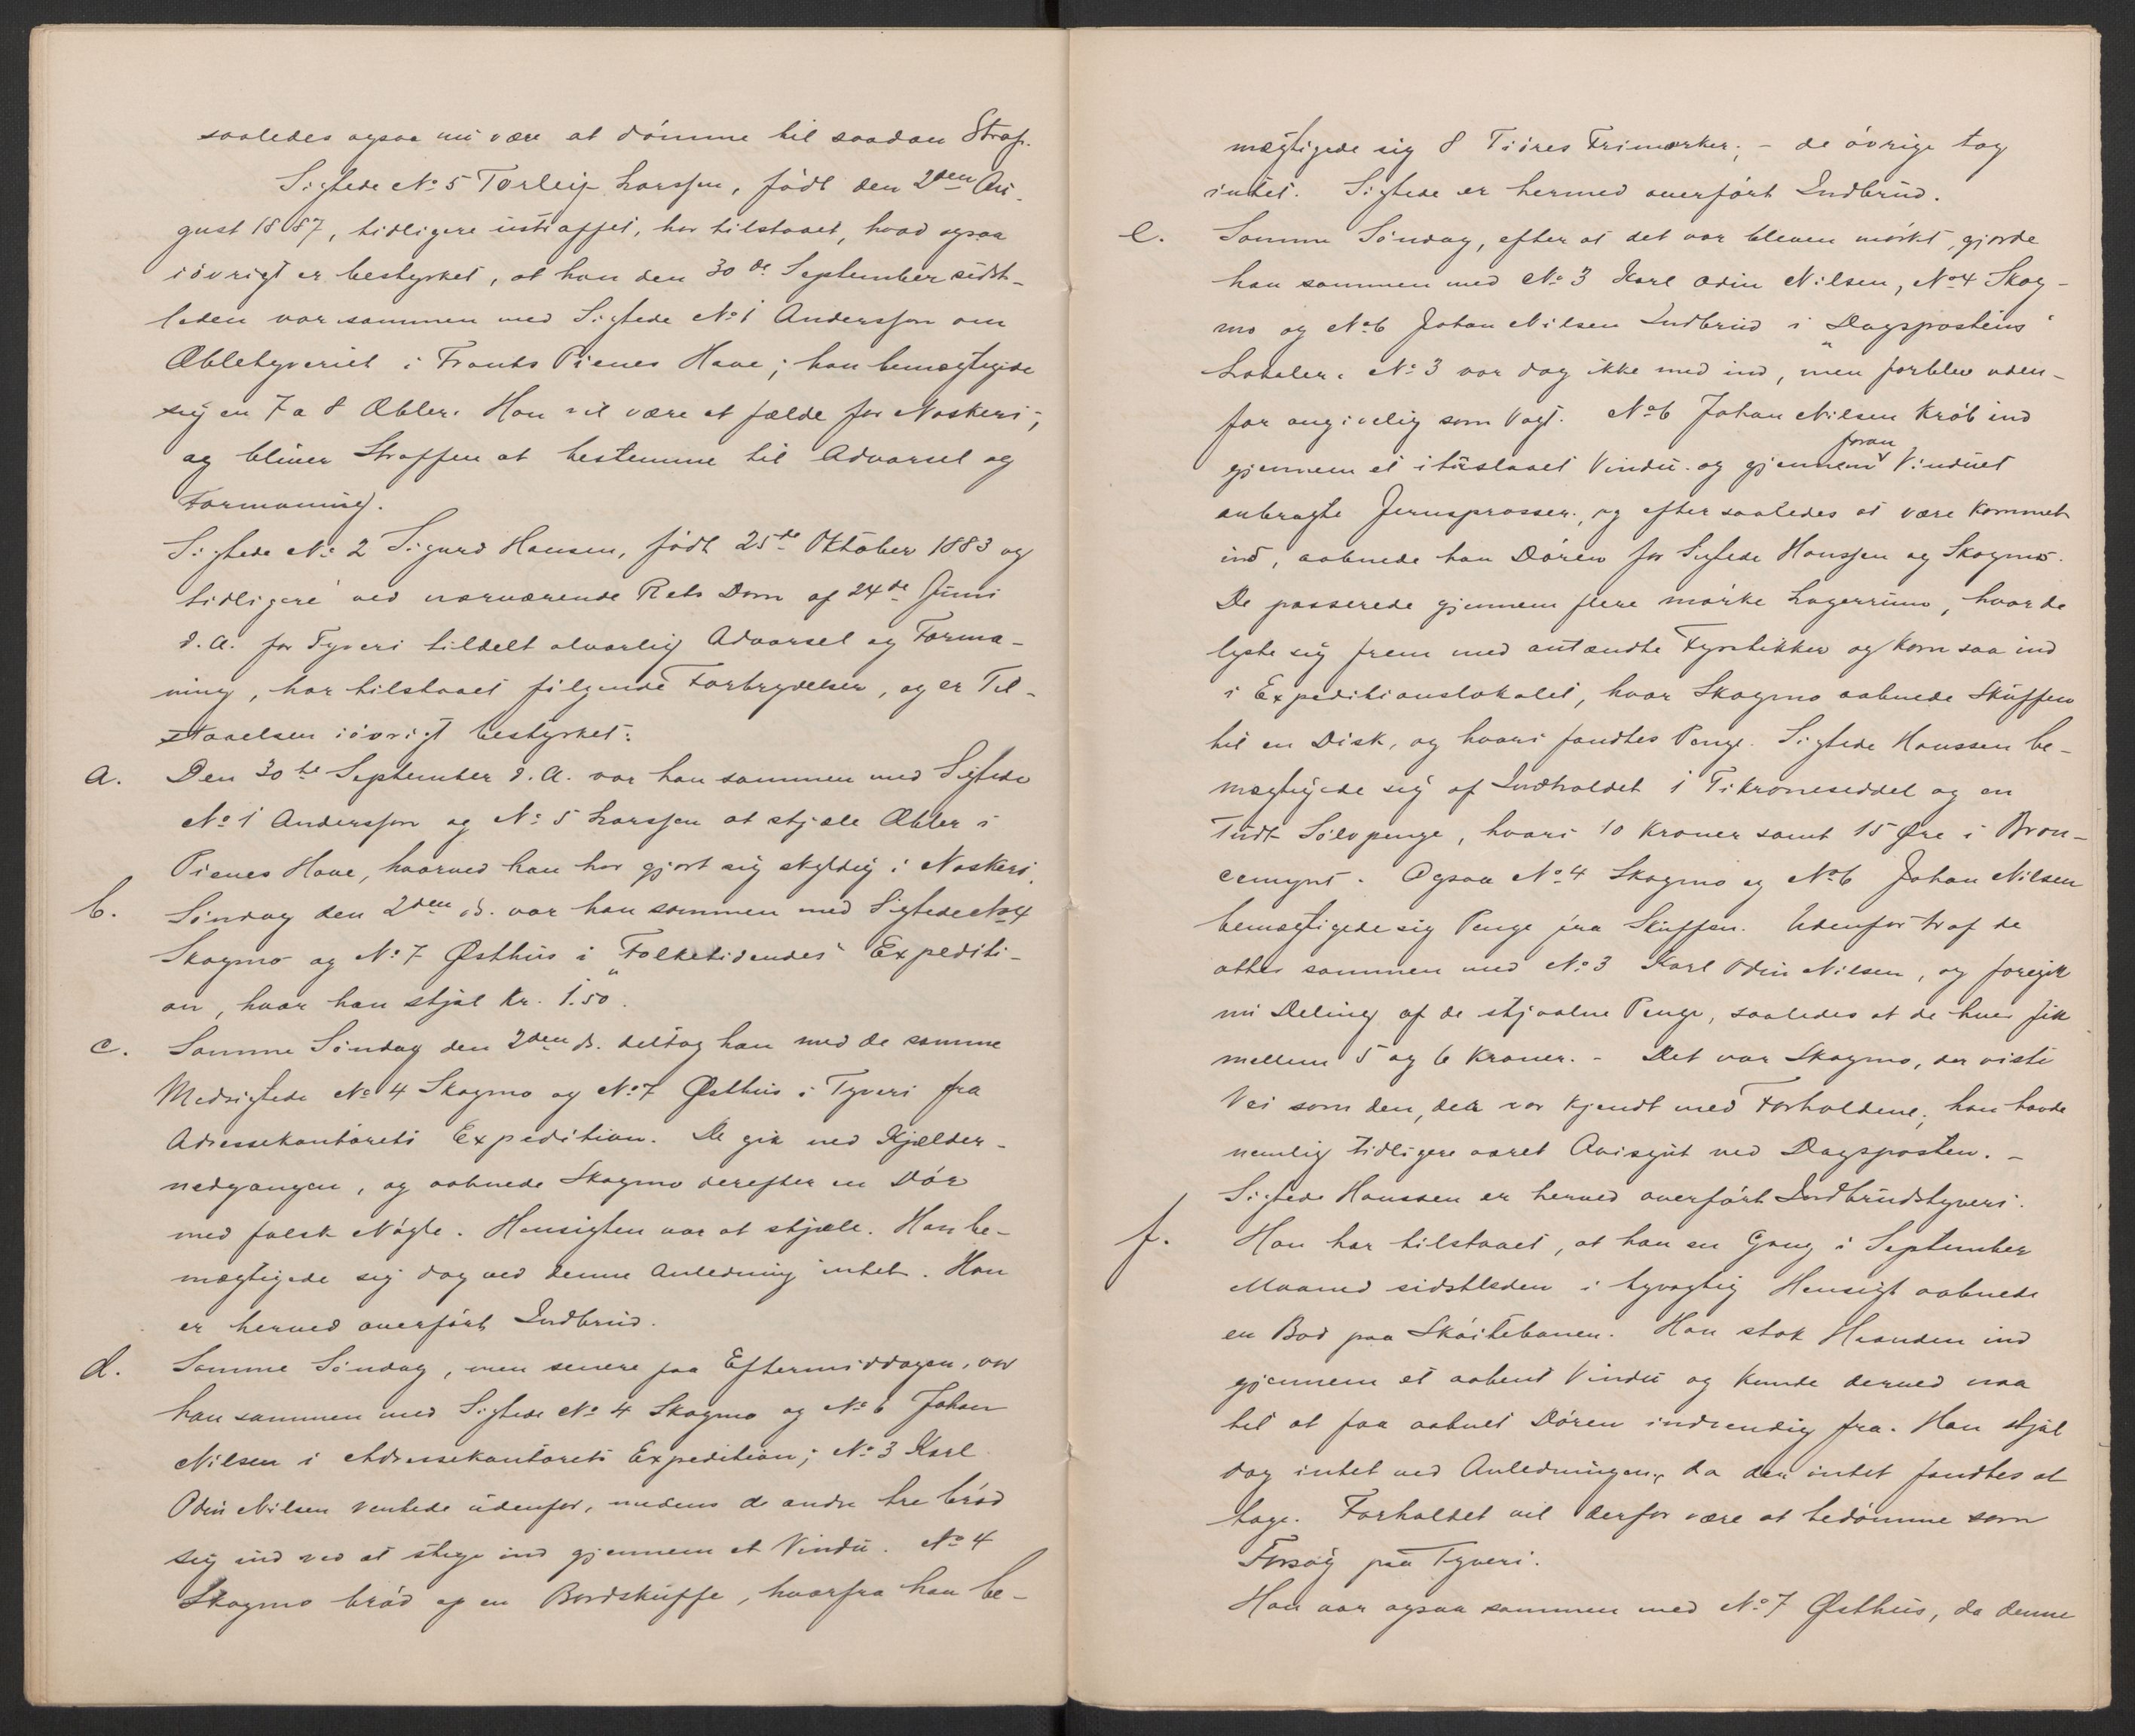 saaledes ogsaa nu være at dömme til saadan Straf.
Sigtede No 5 Torleif Larssen, födt den 2den Au-
gust 1887, tidligere ustraffet, har tilstaaet, hvad ogsaa
iövrigt er bestyrket, at han den 30de September sidst-
leden var sammen med Sigtede No 1 Anderssen om
Æbletyveriet i Frants Pienes Have; han bemægtigede
sig en 7 a 8 Æbler. Han vil være at fælde for Naskeri,
og bliver Straffen at bestemme til Advarsel og
Formaning.
Sigtede No 2 Sigurd Hansen, födt 25de Oktober 1883 og
tidligere ved nærværende Rets Dom af 24de Juni
d. A. for Tyveri tildelt alvorlig Advarsel og Forma-
ning, har tilstaaet fölgende Forbrydelser, og er Til-
staaelsen iövrigt bestyrket:
a. Den 30te September d. A. var han sammen med Sigtede
No 1 Anderssen og No 5 Larssen at stjæle Æbler i
Pienes Have, hvorved han har gjort sig skyldig i Naskeri.
b. Söndag den 2den ds. var han sammen med Sigtede No 4
Skogmo og No 7 Østhus i „Folketidendes“ Expediti-
on, hvor han stjal Kr. 1.50.
c. Samme Söndag den 2den ds. deltog han med de samme
Medsigtede No 4 Skogmo og No 7 Østhus i Tyveri fra
Adressekontorets Expedition. De gik ned Kjælder-
nedgangen, og aabnede Skogmo derefter en Dör
med falsk Nögle. Hensigten var at stjæle. Han be-
mægtigede sig dog ved denne Anledning intet. Han
er herved overfört Indbrud.
d. Samme Söndag, men senere paa Eftermiddagen, var
han sammen med Sigtede No 4 Skogmo og No 6 Johan
Nilsen i Adressekontorets Expedition; No 3 Karl
Odin Nilsen ventede udenfor, medens de andre tre bröd
sig ind ved at stige ind gjennem et Vindu. No 4
Skogmo bröd op en Bordskuffe, hvorfra han be-
mægtigede sig 8 Tiöres Frimærker; - de övrige tog
intet. Sigtede er hermed overfört Indbrud.
e. Samme Söndag, efter at det var bleven mörkt, gjorde
han sammen med No 3 Karl Odin Nilsen, No 4 Skog-
mo og No 6 Johan Nilsen Indbrud i „Dagspostens“
Lokaler. No 3 var dog ikke med ind, men forblev uden-
for angivelig som Vagt. No 6 Johan Nilsen kröb ind
gjennem et ituslaaet Vindu og gjennem foran Vinduet
anbragte Jernsprosser, og efter saaledes at være kommet
ind, aabnede han Dören for Sigtede Hanssen og Skogmo.
De passerede gjennem flere mörke Lagerrum, hvor de
lyste sig frem med antændte Fyrstikker og kom saa ind
i Expeditionslokalet, hvor Skogmo aabnede Skuffen
til en Disk, og hvori fandtes Penge. Sigtede Hanssen be-
mægtigede sig af Indholdet 1 Tikroneseddel og en
Tudt Sölvpenge, hvori 10 Kroner samt 15 Øre i Bron-
cemynt. Ogsaa No 4 Skogmo og No 6 Johan Nilsen
bemægtigede sig Penge fra Skuffen. Udenfor traf de
atter sammen med No 3 Karl Odin Nilsen, og foregik
nu Deling af de stjaalne Penge, saaledes at de hver fik
mellem 5 og 6 Kroner. - Det var Skogmo, der viste
Vei som den, der var kjendt med Forholdene; han havde
nemlig tidligere været Avisgut ved Dagsposten. -
Sigtede Hanssen er herved overfört Indbrudstyveri.
f. Han har tilstaaet, at han en Gang i September
Maaned sidstleden i tyvagtig Hensigt aabnede
en Bod paa Sköitebanen. Han stak Haanden ind
gjennem et aabent Vindu og kunde derved naa
til at faa aabnet Dören indvendig fra. Han stjal
dog intet ved Anledningen, da der intet fandtes at
tage. Forholdet vil derfor være at bedömme som
Forsög paa Tyveri.
Han var ogsaa sammen med No 7 Østhus, da denne